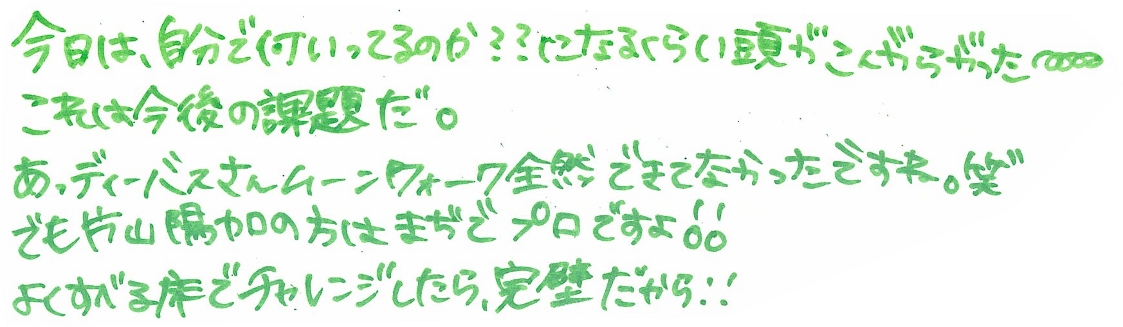 今日は、自分で何いってるのか???になるくらい頭がこんがらがった〜〜〜
これは今後の課題だ。
あ、ディーバスさんムーンウォーク全然できてなかったですね。笑"
でも片山陽加の方はまぢでプロですよ!!
よくすべる床でチャレンジしたら、完璧だから!!